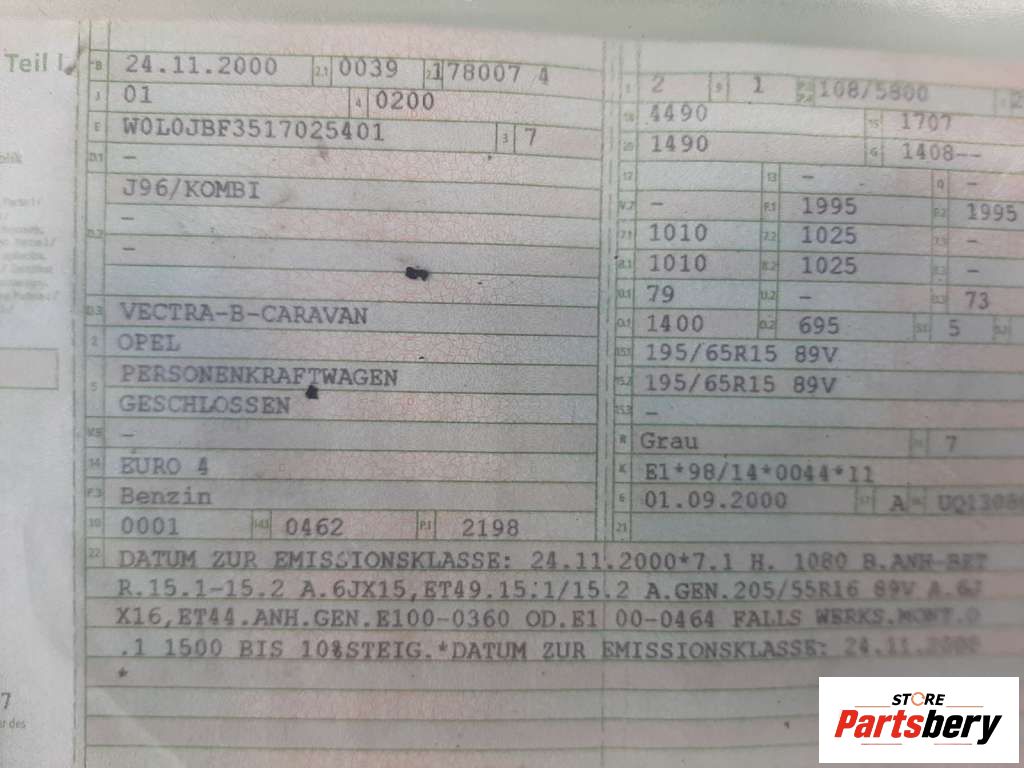 Teil I
B 24.11.2000 2.1 0039 178007 4
J 01 4 0200
E W0L0JBF3517025401 3 7
D.1 –
J96/KOMBI
–
D.2 –
D.3 VECTRA-B-CARAVAN
2 OPEL
5 PERSONENKRAFTWAGEN
GESCHLOSSEN
V.9 –
14 EURO 4
P.3 Benzin
10 0001 14.1 0462 P.1 2198
2 9 1 108/5800
18 4490 19 1707
20 1490 G 1408--
12 – 13 – Q –
V.7 – F.1 1995 F.2 1995
7.1 1010 7.2 1025 7.3 –
8.1 1010 8.2 1025 8.3 –
U.1 79 U.2 – U.3 73
O.1 1400 O.2 695 S.1 5 S.2
15.1 195/65R15 89V
15.2 195/65R15 89V
15.3 –
R Grau 7
K E1*98/14*0044*11
6 01.09.2000 17 A 16
21
22 DATUM ZUR EMISSIONSKLASSE: 24.11.2000*7.1 H. 1080 B.ANH-BET
R.15.1-15.2 A.6JX15,ET49.15.1/15.2 A.GEN.205/55R16 89V A.6J
X16,ET44.ANH.GEN.E100-0360 OD.E1 00-0464 FALLS WERKS.MONT.O
.1 1500 BIS 10%STEIG.*DATUM ZUR EMISSIONSKLASSE: 24.11.2000
*
7
STORE
Partsbery